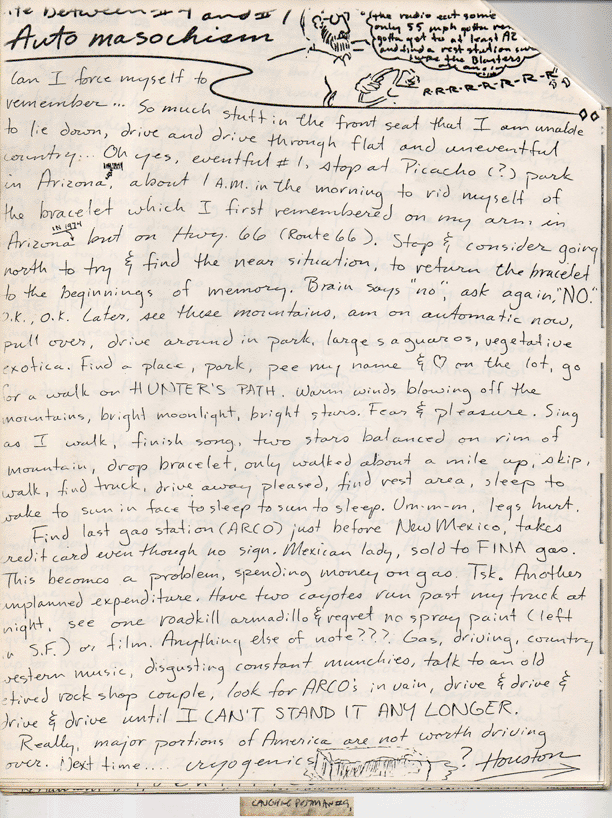 Between #1 and #1
Auto masochism
the radio eat some
only 55 mph gotta
gotta get to at least AZ
and find a rest station
the Blasters
R-R-R-R-A-R-R-R-R
Can I force myself to
remember... So much stuff in the front seat that I am unable
to lie down, drive and drive through flat and uneventful
country... Oh yes, eventful #1, stop at Picacho (?) park
in Arizona, about 1 A.M. in the morning to rid myself of
the bracelet which I first remembered on my arm in
IN 1974
Arizona but on Hwy. 66 (Route 66). Stop & consider going
north to try & find the near situation, to return the bracelet
to the beginnings of memory. Brain says "no", ask again, "NO."
O.K., O.K. Later, see these mountains, am on automatic now,
pull over, drive around in park, large saguaros, vegetative
exotica. Find a place, park, pee my name & ♡ on the lot, go
for a walk on HUNTER'S PATH. Warm winds blowing off the
mountains, bright moonlight, bright stars. Fear & pleasure. Sing
as I walk, finish song, two stars balanced on rim of
mountain, drop bracelet, only walked about a mile up, skip,
walk, find truck, drive away pleased, find rest area, sleep to
wake to sun in face to sleep to sun to sleep. Um-m-m, legs hurt.
Find last gas station (ARCO) just before New Mexico, takes
redit card even though no sign. Mexican lady, sold to FINA gas.
This becomes a problem, spending money on gas. Tsk. Another
unplanned expenditure. Have two coyotes run past my truck at
night, see one roadkill armadillo & regret no spray paint (left
S.F.) or film. Anything else of note??? Gas, driving, country
western music, disgusting constant munchies, talk to an old
etired rock shop couple, look for ARCO's in vain, drive & drive &
drive & drive until I CAN'T STAND IT ANY LONGER.
Really, major portions of America are not worth driving
over. Next time..... cryogenics ? Houston